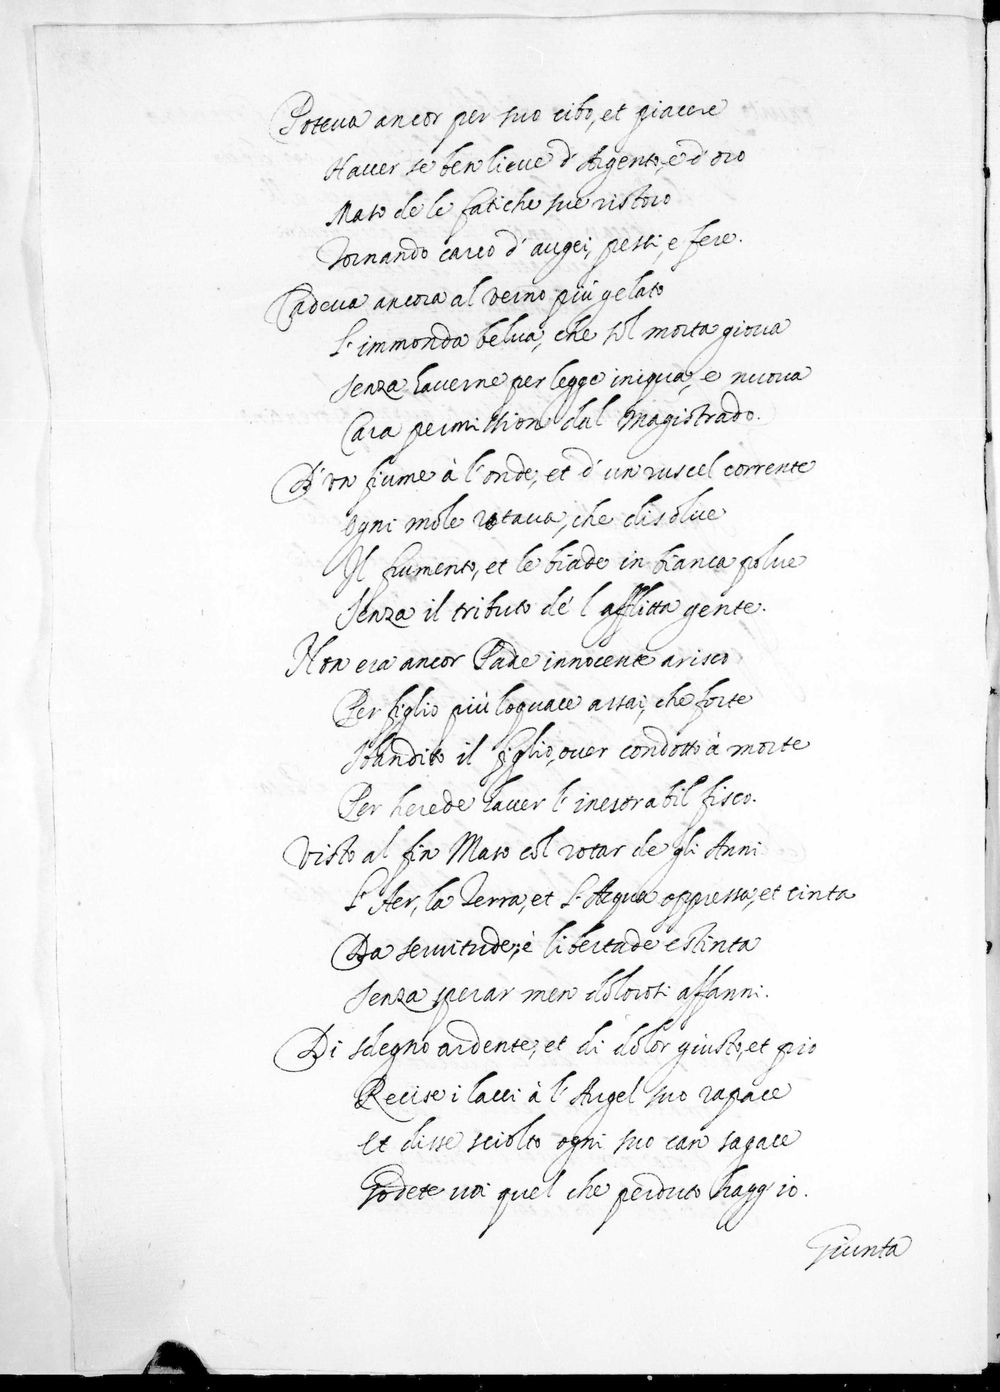 Poteva ancor per suo cibo, et piacere
Haver se ben lieve d'Argento, e d'oro
Maso de le fatiche sue ristoro
Tornando carco d'augei, pesci, e fere.
Cadeva ancora al verno più gelato
L'immonda belva, che sol morta giova
Senza haverne per legge iniqua, e nuova
Cara permission dal Magistrado.
D'un fiume à l'onde, et d'un ruscel corrente
Ogni mole rotava, che disolve
Il frumento, et le biade in bianca polve
Senza il tributo de l'afflitta gente.
Non era ancor Padre innocente a risco
Per figlio più loquace assai, che forte
Sbandito il figlio, over condotto à morte
Per herede haver l'inesorabil fisco.
Visto al fin Maso col rotar de gli Anni
L'Aer, la Terra, et l'Acqua oppressa, et cinta
Da servitude, è libertade estinta
Senza sperar men dolorosi affanni.
Di sdegno ardente, et di dolor giusto, et pio
Recise i lacci à l'Augel suo rapace
Et disse sciolto ogni suo can sagace
Godete voi quel che perduto haggio.
Giunta